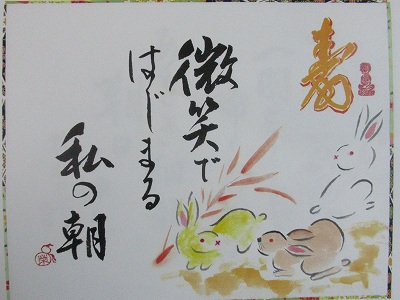 寿
微笑で
はじまる
私の朝